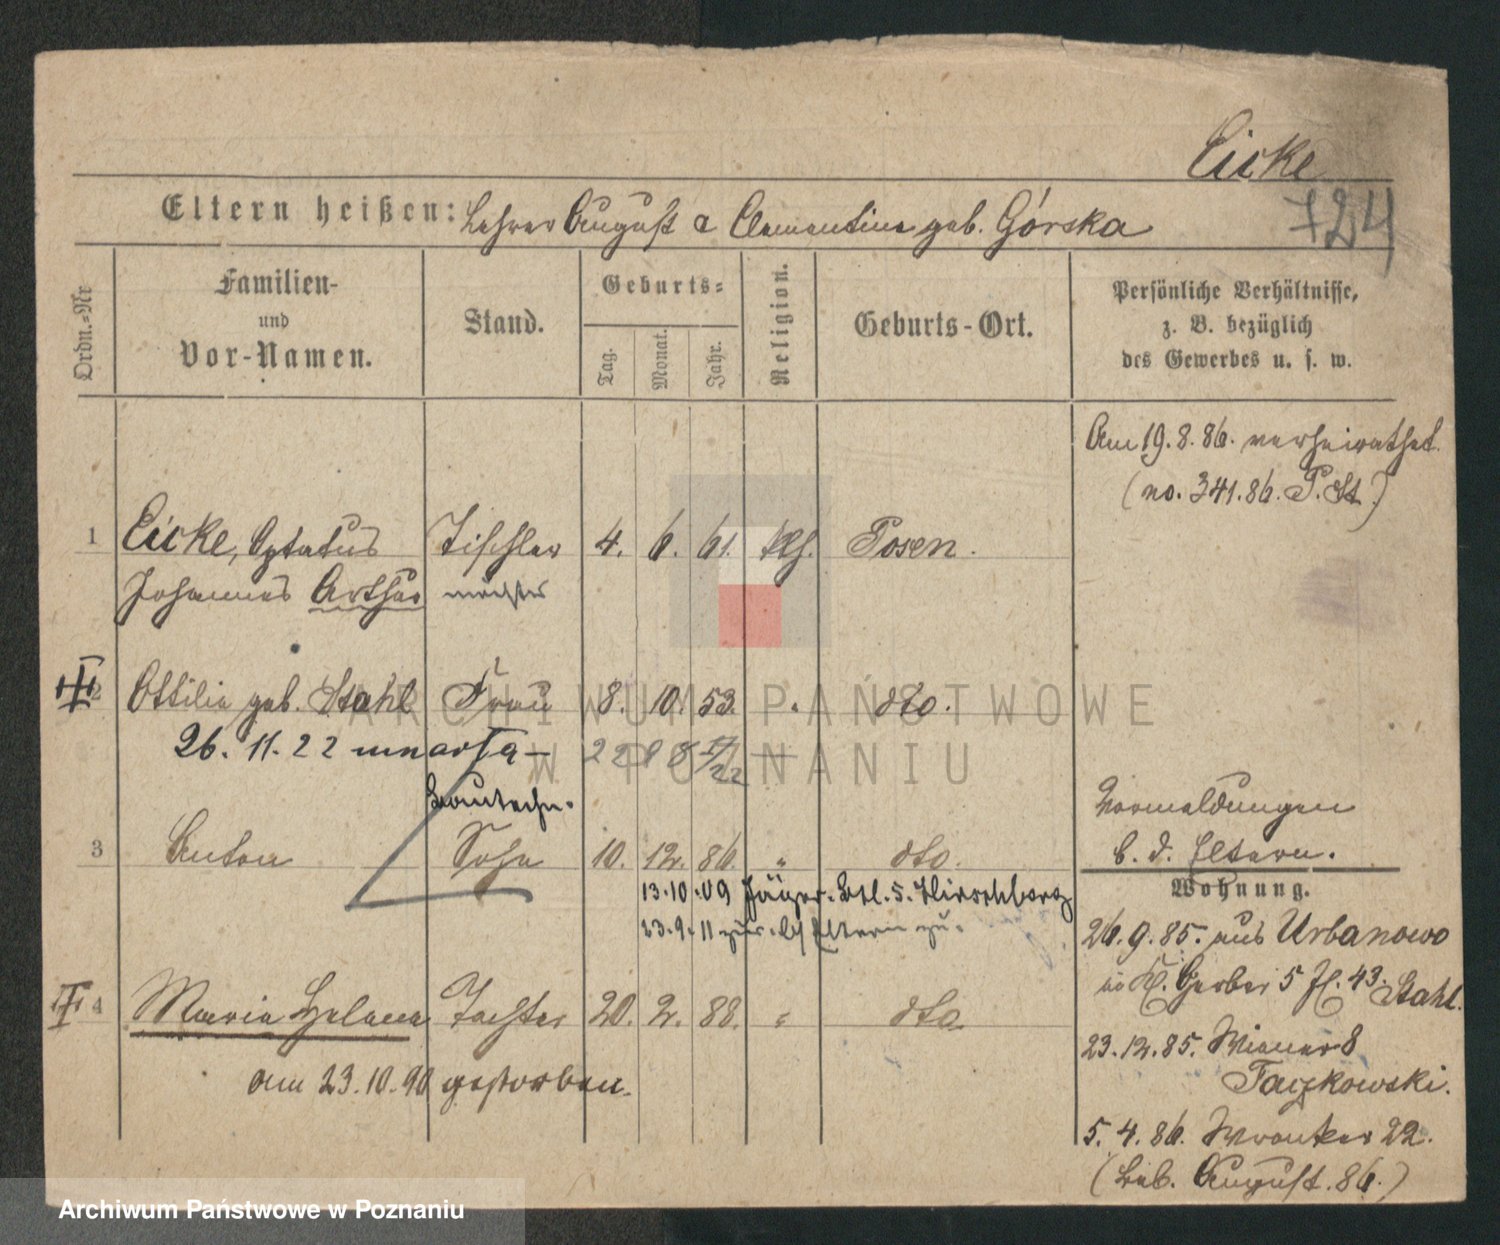 Eicke
724
Eltern heißen: Lehrer August & Clementine geb. Górska
Ordn.-Nr
Familien-
und
Vor-Namen.
Stand.
Geburts-
Tag.
Monat.
Jahr.
Religion.
Geburts-Ort.
Persönliche Verhältnisse,
z. B. bezüglich
des Gewerbes u. s. w.
Am 19.8.86. verheirathet.
(no. 341.86. P. St.)
1 Eicke, Optatus Tischler 4. 6. 61. kth. Posen.
Johannes Arthur meister
2 Ottilie geb. Stahl Frau 8. 10. 53. " dto.
26. 11. 22 umarła
Bautechn.
3 Anton Sohn 10. 12. 86. " dto.
13.10.09 Jäger-Btl. 5. Hirschberg
23.9.11 zur. bei Eltern zu.
4 Maria Helene Tochter 20. 2. 88. " dto
am 23.10.90 gestorben.
Vormeldungen
b. d. Eltern.
Wohnung.
26.9.85. aus Urbanowo
in Kl. Gerber 5 Stahl.
23.12.85. Wiener 8
Taczkowski.
5. 4. 86. Wronker 22.
(bis August. 86.)
ARCHIWUM PAŃSTWOWE
W POZNANIU
Archiwum Państwowe w Poznaniu